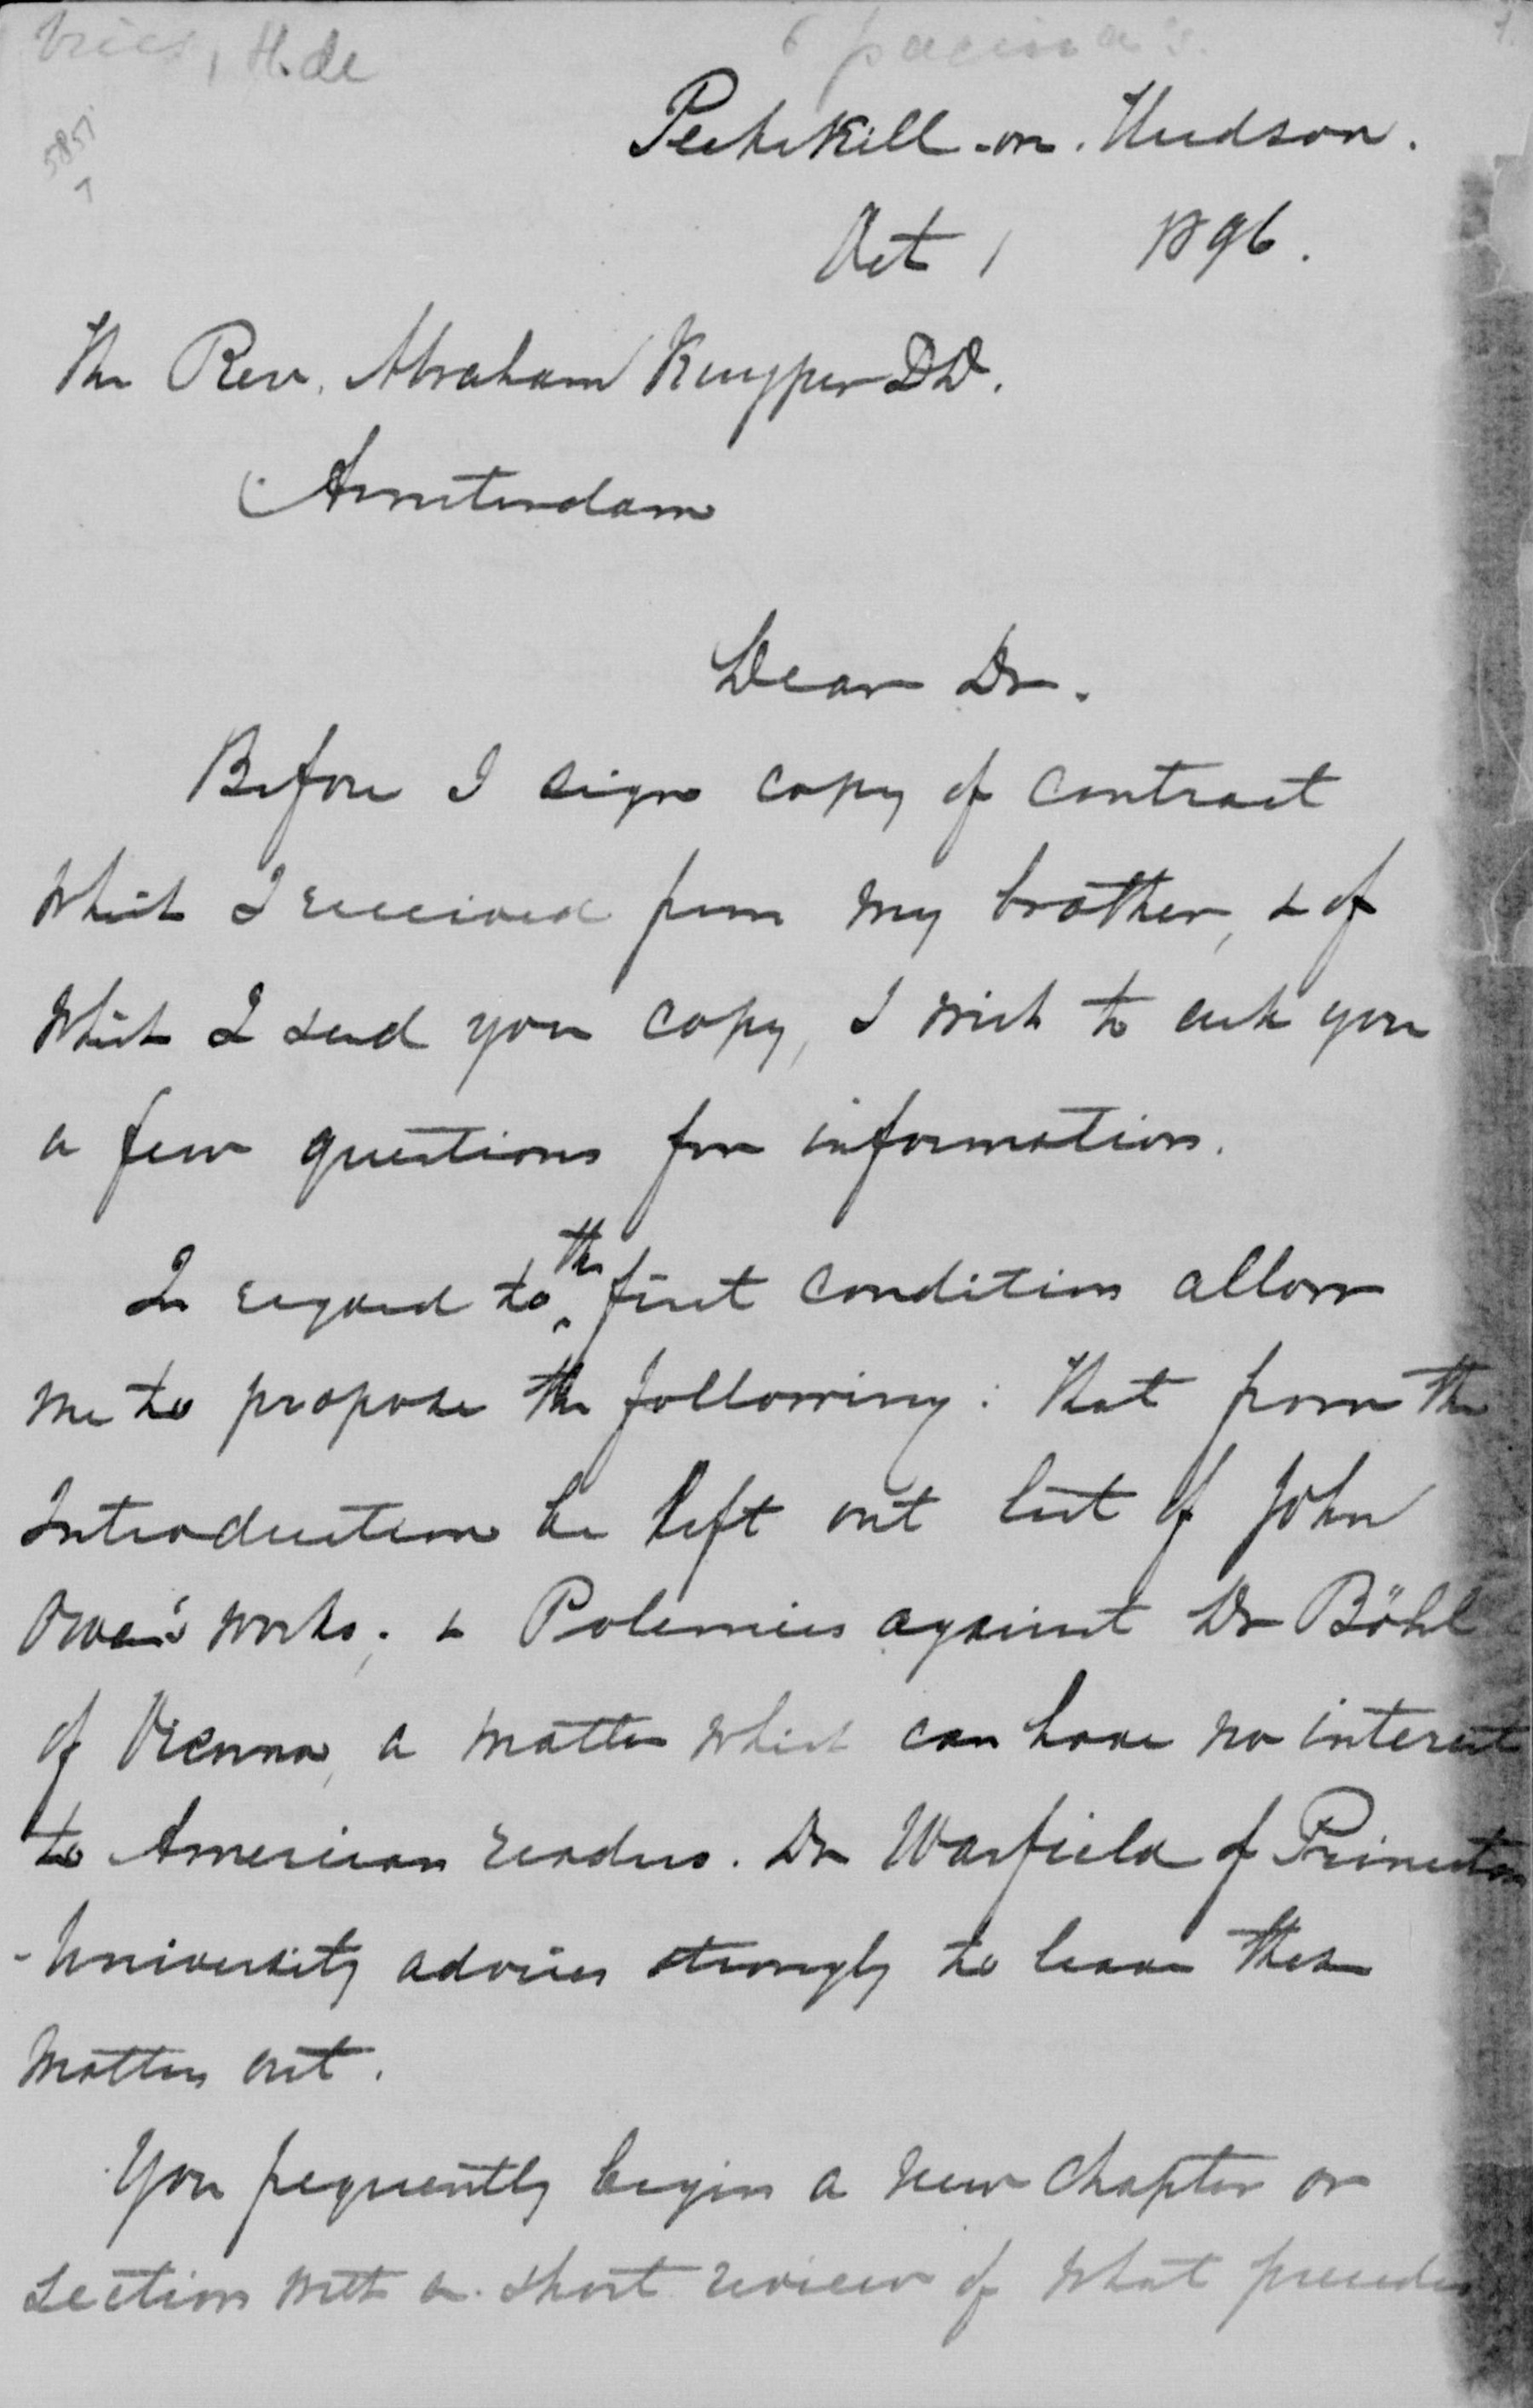 Vries, H. de
6 pagina's.
1.
5851
Peekskill-on-Hudson.
Oct 1 1896.
The Rev. Abraham Kuyper DD.
Amsterdam
Dear Dr.
Before I sign copy of contract
which I received from my brother, & of
which I send you copy, I wish to ask you
a few questions for information.
In regard to the first condition allow
me to propose the following: that from the
Introduction be left out list of John
Owen's works; & Polemics against Dr Böhl
of Vienna, a matter which can have no interest
to American readers. Dr Warfield of Princeton
-University advises strongly to leave these
matters out.
You frequently begin a new chapter or
section with a short review of what precedes